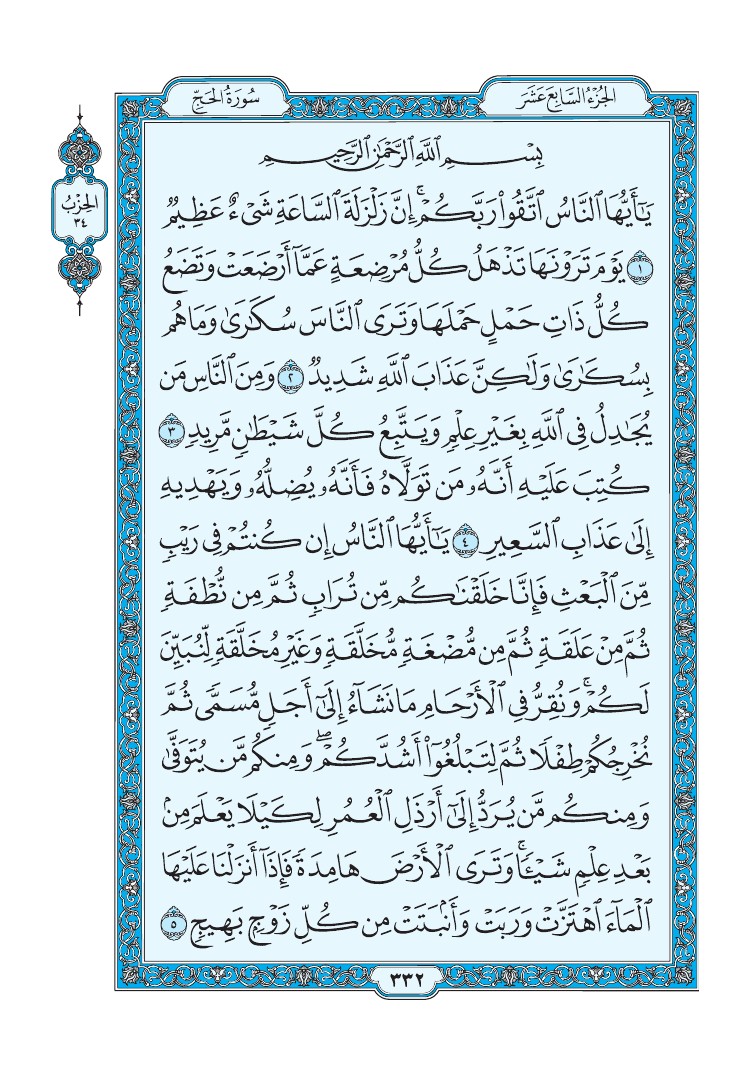 الجُزْءُ السَّابِعَ عَشَرَ
سُورَةُ الحَجِّ
الحِزْبُ
٣٤
بِسْمِ ٱللَّهِ ٱلرَّحْمَٰنِ ٱلرَّحِيمِ
يَٰٓأَيُّهَا ٱلنَّاسُ ٱتَّقُوا۟ رَبَّكُمْ ۚ إِنَّ زَلْزَلَةَ ٱلسَّاعَةِ شَىْءٌ عَظِيمٌ
١ يَوْمَ تَرَوْنَهَا تَذْهَلُ كُلُّ مُرْضِعَةٍ عَمَّآ أَرْضَعَتْ وَتَضَعُ
كُلُّ ذَاتِ حَمْلٍ حَمْلَهَا وَتَرَى ٱلنَّاسَ سُكَٰرَىٰ وَمَا هُم
بِسُكَٰرَىٰ وَلَٰكِنَّ عَذَابَ ٱللَّهِ شَدِيدٌ ٢ وَمِنَ ٱلنَّاسِ مَن
يُجَٰدِلُ فِى ٱللَّهِ بِغَيْرِ عِلْمٍ وَيَتَّبِعُ كُلَّ شَيْطَٰنٍ مَّرِيدٍ ٣
كُتِبَ عَلَيْهِ أَنَّهُۥ مَن تَوَلَّاهُ فَأَنَّهُۥ يُضِلُّهُۥ وَيَهْدِيهِ
إِلَىٰ عَذَابِ ٱلسَّعِيرِ ٤ يَٰٓأَيُّهَا ٱلنَّاسُ إِن كُنتُمْ فِى رَيْبٍ
مِّنَ ٱلْبَعْثِ فَإِنَّا خَلَقْنَٰكُم مِّن تُرَابٍ ثُمَّ مِن نُّطْفَةٍ
ثُمَّ مِنْ عَلَقَةٍ ثُمَّ مِن مُّضْغَةٍ مُّخَلَّقَةٍ وَغَيْرِ مُخَلَّقَةٍ لِّنُبَيِّنَ
لَكُمْ ۚ وَنُقِرُّ فِى ٱلْأَرْحَامِ مَا نَشَآءُ إِلَىٰٓ أَجَلٍ مُّسَمًّى ثُمَّ
نُخْرِجُكُمْ طِفْلًا ثُمَّ لِتَبْلُغُوٓا۟ أَشُدَّكُمْ ۖ وَمِنكُم مَّن يُتَوَفَّىٰ
وَمِنكُم مَّن يُرَدُّ إِلَىٰٓ أَرْذَلِ ٱلْعُمُرِ لِكَيْلَا يَعْلَمَ مِنۢ
بَعْدِ عِلْمٍ شَيْـًٔا ۚ وَتَرَى ٱلْأَرْضَ هَامِدَةً فَإِذَآ أَنزَلْنَا عَلَيْهَا
ٱلْمَآءَ ٱهْتَزَّتْ وَرَبَتْ وَأَنۢبَتَتْ مِن كُلِّ زَوْجٍۭ بَهِيجٍ ٥
٣٣٢